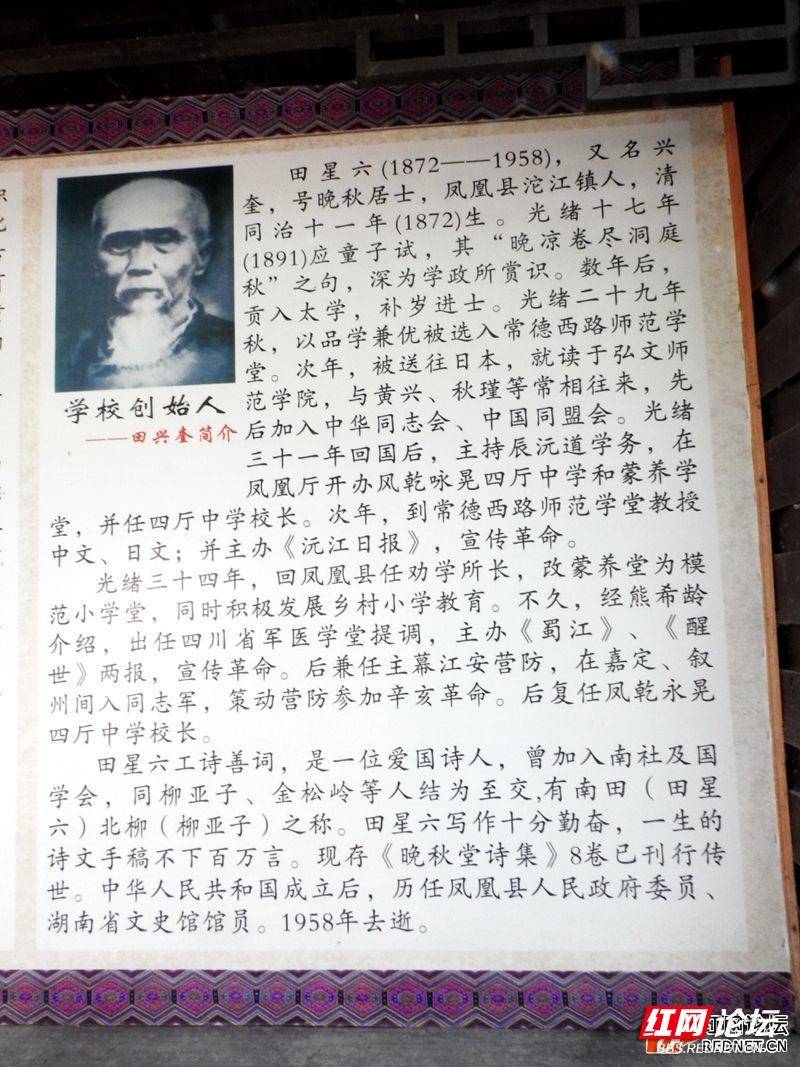 田星六(1872——1958)，又名兴
奎，号晚秋居士，凤凰县沱江镇人，清
同治十一年(1872)生。光绪十七年
(1891)应童子试，其“晚凉卷尽洞庭
秋”之句，深为学政所赏识。数年后，
贡入太学，补岁进士。光绪二十九年
秋，以品学兼优被选入常德西路师范学
堂。次年，被送往日本，就读于弘文师
范学院，与黄兴、秋瑾等常相往来，先
后加入中华同志会、中国同盟会。光绪
三十一年回国后，主持辰沅道学务，在
凤凰厅开办风乾咏晃四厅中学和蒙养学
堂，并任四厅中学校长。次年，到常德西路师范学堂教授
中文、日文；并主办《沅江日报》，宣传革命。
光绪三十四年，回凤凰县任劝学所长，改蒙养堂为模
范小学堂，同时积极发展乡村小学教育。不久，经熊希龄
介绍，出任四川省军医学堂提调，主办《蜀江》、《醒
世》两报，宣传革命。后兼任主幕江安营防，在嘉定、叙
州间入同志军，策动营防参加辛亥革命。后复任凤乾永晃
四厅中学校长。
田星六工诗善词，是一位爱国诗人，曾加入南社及国
学会，同柳亚子、金松岭等人结为至交,有南田（田星
六）北柳（柳亚子）之称。田星六写作十分勤奋，一生的
诗文手稿不下百万言。现存《晚秋堂诗集》8卷已刊行传
世。中华人民共和国成立后，历任凤凰县人民政府委员、
湖南省文史馆馆员。1958年去逝。
学校创始人
——田兴奎简介
红网论坛
BBS.REDNET.CN
REDNET.CN